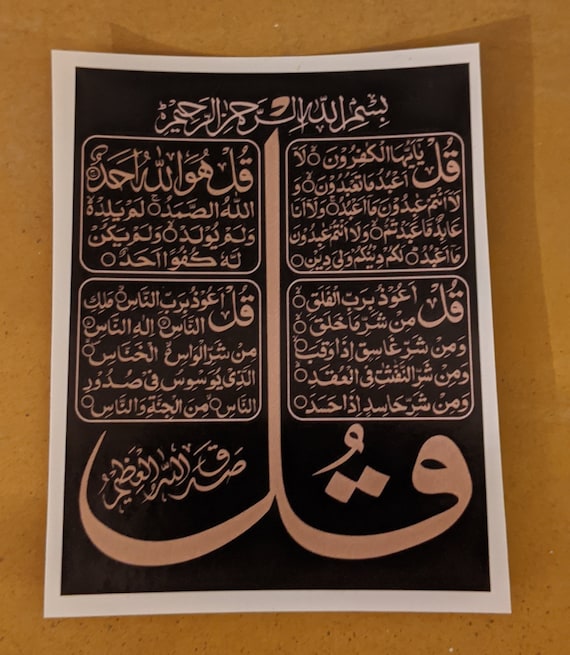 بِسْمِ اللهِ الرَّحْمٰنِ الرَّحِيْمِ
قُلْ يٰاَيُّهَا الْكٰفِرُوْنَ ○ لَا
اَعْبُدُ مَا تَعْبُدُوْنَ ○ وَ
لَا اَنْتُمْ عٰبِدُوْنَ مَا اَعْبُدُ ○ وَلَا اَنَا
عَابِدٌ مَّا عَبَدْتُّمْ ○ وَلَا اَنْتُمْ عٰبِدُوْنَ
مَا اَعْبُدُ ○ لَكُمْ دِيْنُكُمْ وَلِيَ دِيْنِ ○
قُلْ هُوَ اللهُ اَحَدٌ ○
اَللهُ الصَّمَدُ ○ لَمْ يَلِدْ ○
وَلَمْ يُوْلَدْ ○ وَلَمْ يَكُنْ
لَّهٗ كُفُوًا اَحَدٌ ○
قُلْ اَعُوْذُ بِرَبِّ الْفَلَقِ ○
مِنْ شَرِّ مَا خَلَقَ ○
وَمِنْ شَرِّ غَاسِقٍ اِذَا وَقَبَ ○
وَمِنْ شَرِّ النَّفّٰثٰتِ فِي الْعُقَدِ ○
وَمِنْ شَرِّ حَاسِدٍ اِذَا حَسَدَ ○
قُلْ اَعُوْذُ بِرَبِّ النَّاسِ ○ مَلِكِ
النَّاسِ ○ اِلٰهِ النَّاسِ ○
مِنْ شَرِّ الْخَنَّاسِ ○
الَّذِيْ يُوَسْوِسُ فِيْ صُدُوْرِ
النَّاسِ ○ مِنَ الْجِنَّةِ وَالنَّاسِ ○
قُل
صَدَقَ اللهُ الْعَظِيْم